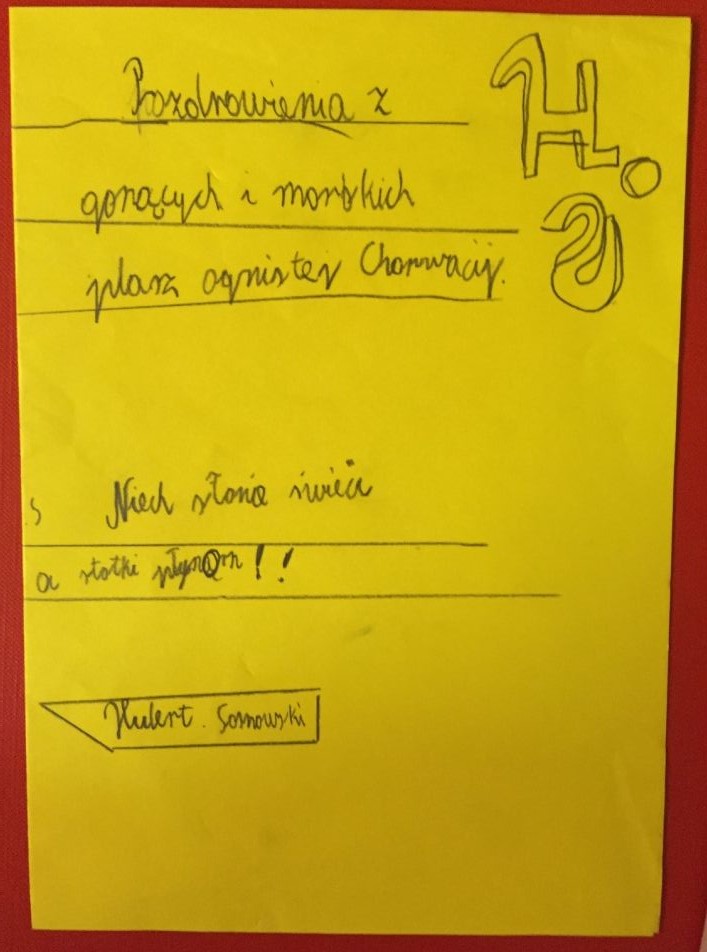 Pozdrowienia z
H.
gorących i morskich
plarz ognistej Chorwacij.
Niech słonie świeci
a statki płynom!!
Hubert. Sosnowski